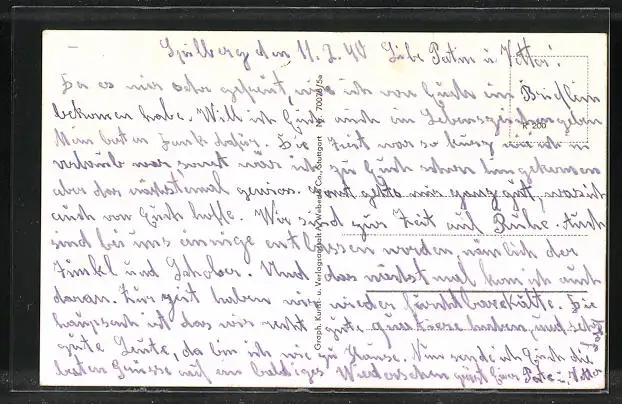 den 11. 2. 40 Liebe Patin u. Vetter!
Da es mir sehr gefreut, wie ich von Euch ein Brieflein
bekommen habe. Will ich Euch auch ein Lebenszeichen geben
Mein besten Dank dafür. Die Zeit war so kurz wie ich in
Urlaub war, sonst wär ich zu Euch schon hingekommen
aber das nächstemal gewiss. Sonst gehts mir ganz gut, was ich
auch von Euch hoffe. Wir sind zur Zeit auf Ruhe. Auch
sind bei uns einige entlassen worden, nämlich der
und. Und das nächst mal kom ich auch
daran. Zur zeit haben wir wieder kälte. Die
hauptsach ist das wir recht gute Quartiere haben, und sehr
gute Leute, da bin ich wie zu Hause. Nun sende ich Euch die
besten Grüsse auf ein baldiges Wiedersehen grüst Eur Pate u. Vetter
K 200
Graph. Kunst- u. Verlagsanstalt A. Weberds Co., Stuttgart Nr. 70076/5a